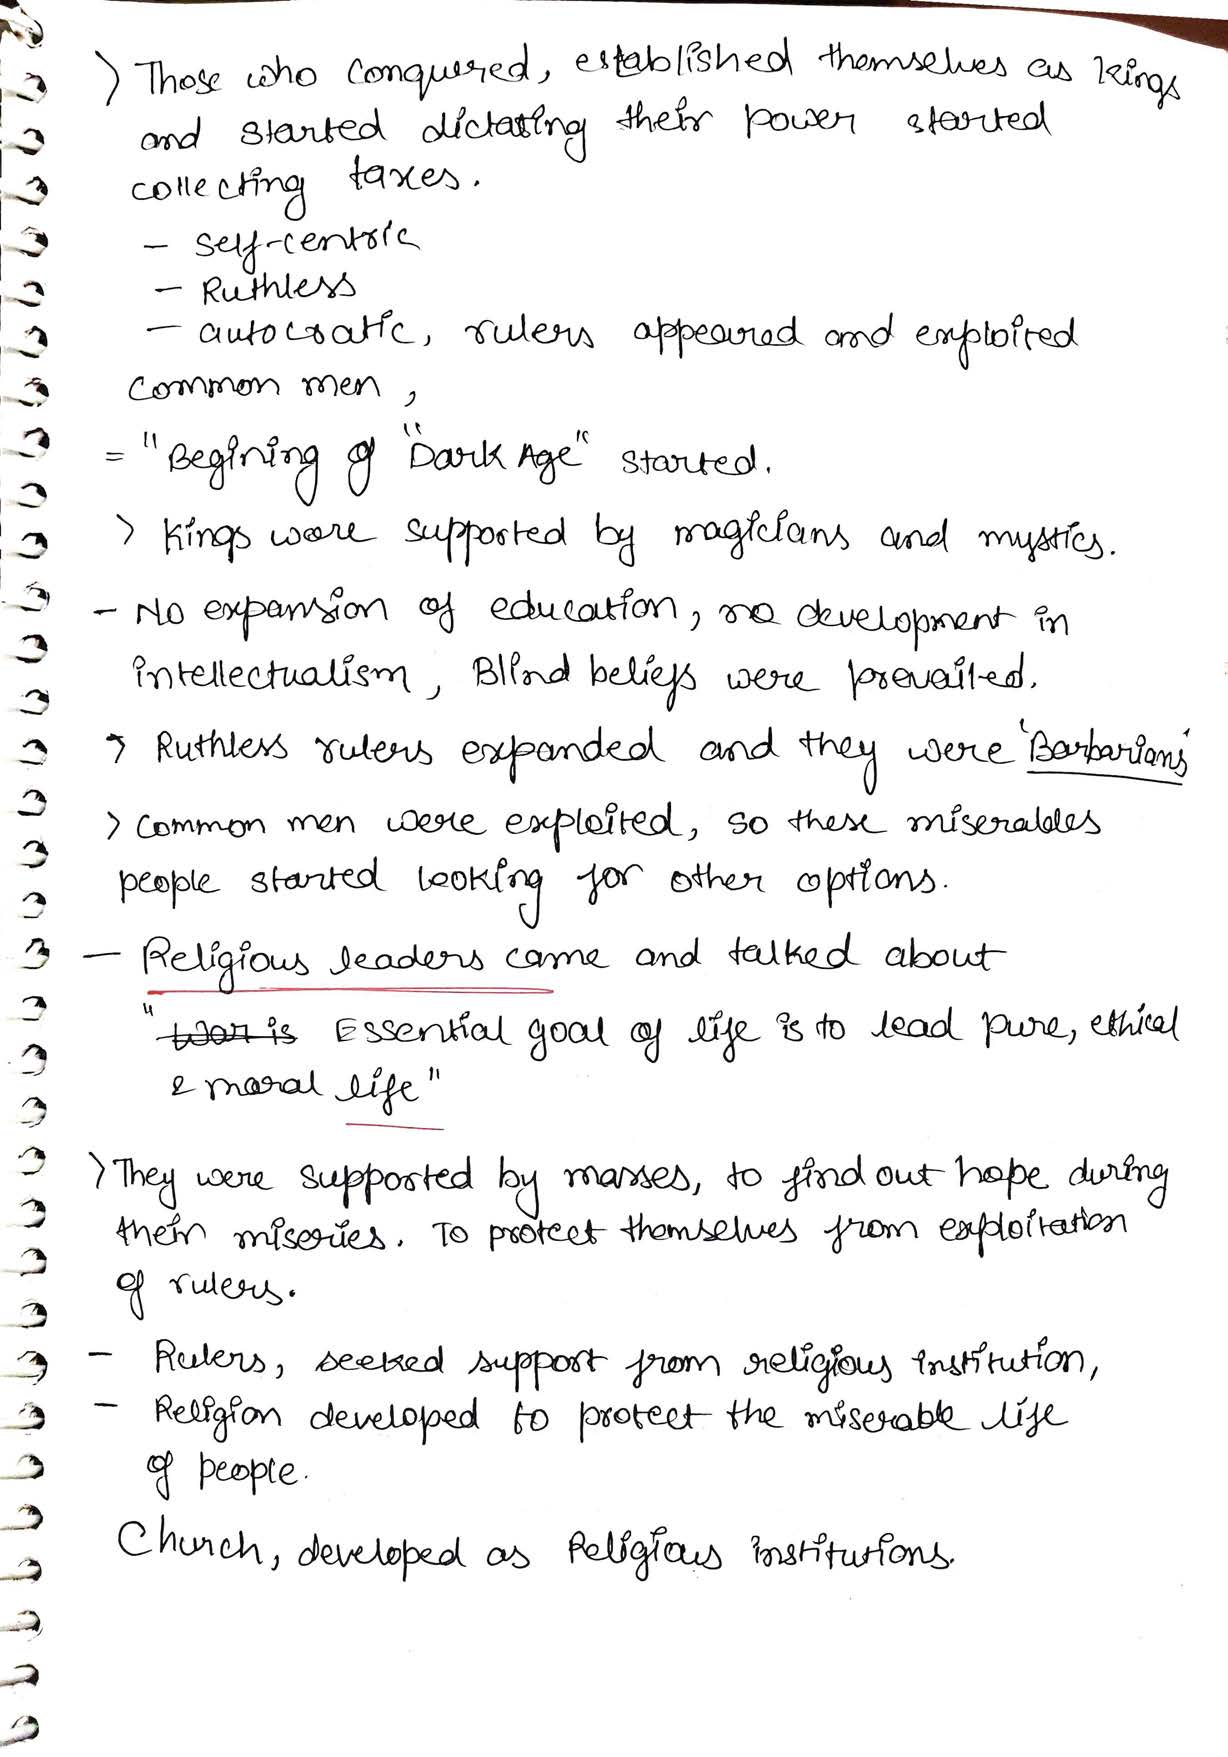 > Those who conquered, established themselves as kings
and started dictating their power started
collecting taxes.
- Self-centric
- Ruthless
- autocratic, rulers appeared and exploited
common men,
= "Begining of "Dark Age" started.
> Kings were supported by magicians and mystics.
- No expansion of education, no development in
intellectualism, Blind beliefs were prevailed.
> Ruthless rulers expanded and they were 'Barbarians'
> Common men were exploited, so these miserables
people started looking for other options.
- Religious leaders came and talked about
"~~War is~~ Essential goal of life is to lead pure, ethical
& moral life"
> They were supported by masses, to find out hope during
their miseries. To protect themselves from exploitation
of rulers.
- Rulers, seeked support from religious institution,
- Religion developed to protect the miserable life
of people.
Church, developed as Religious institutions.